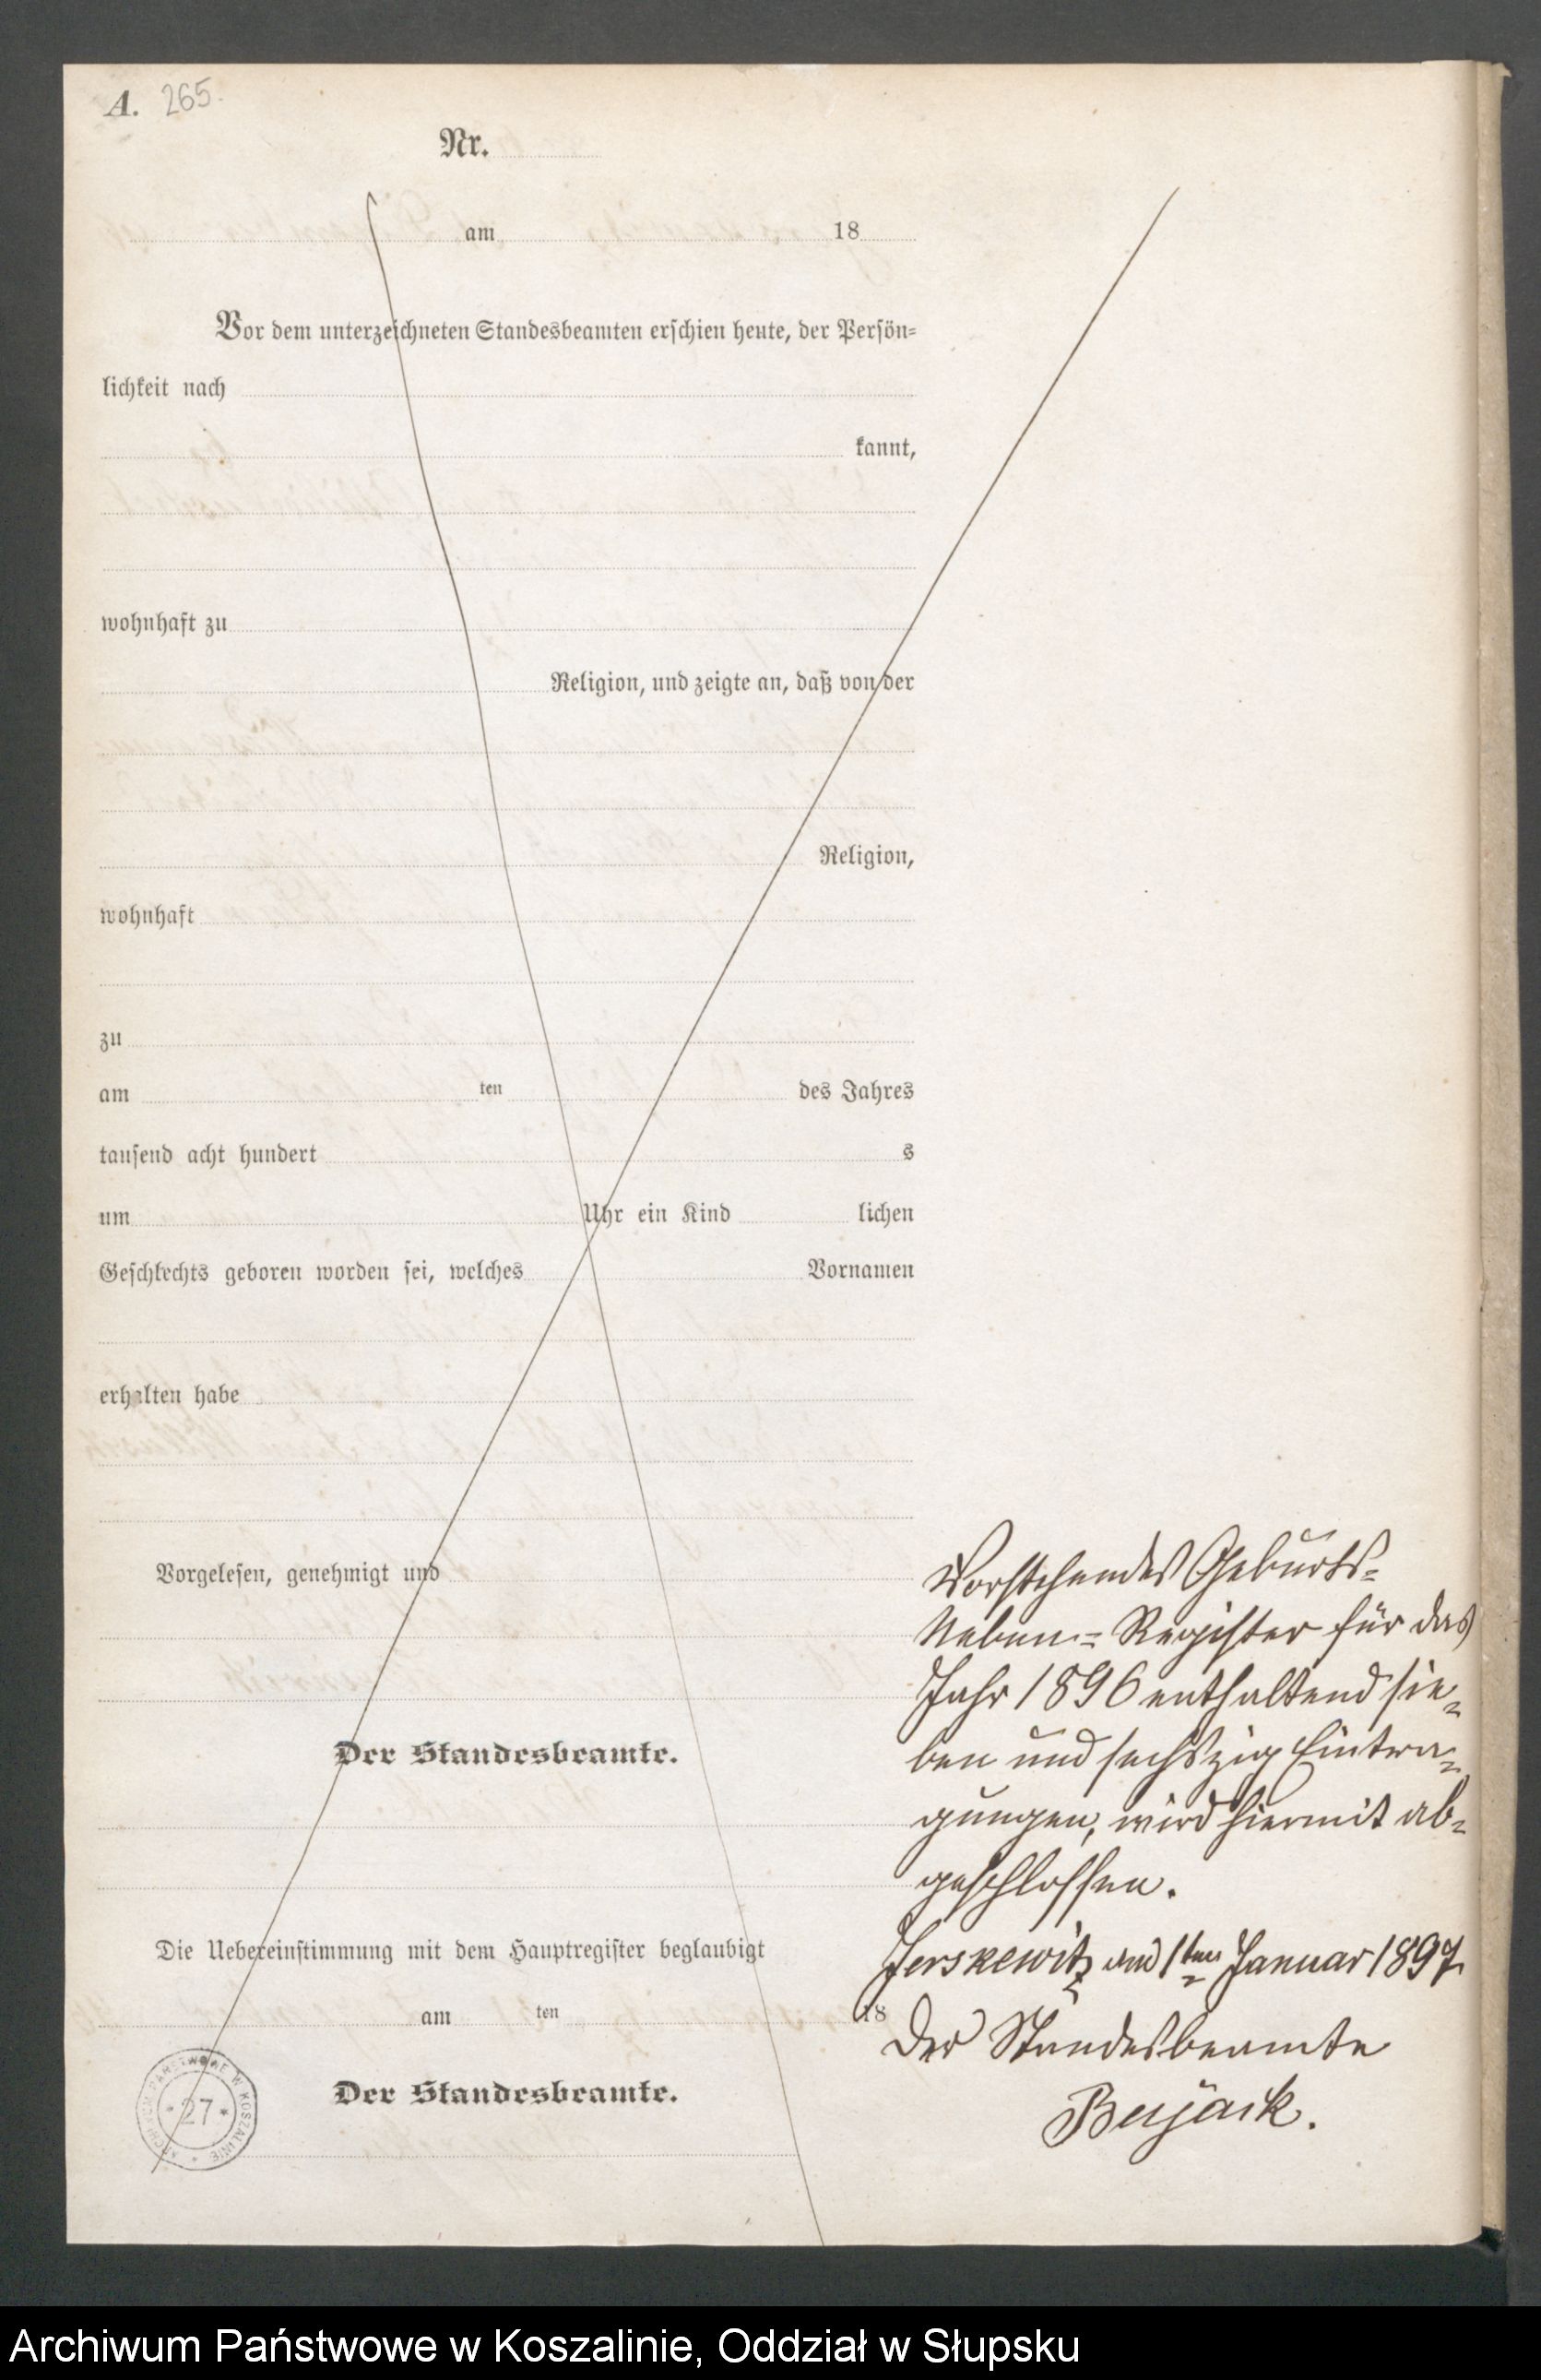 A. 265.
Nr.
am 18
Vor dem unterzeichneten Standesbeamten erschien heute, der Persön=
lichkeit nach
kannt,
wohnhaft zu
Religion, und zeigte an, daß von der
Religion,
wohnhaft
zu
am ten des Jahres
tausend acht hundert s
um Uhr ein Kind lichen
Geschlechts geboren worden sei, welches Vornamen
erhalten habe
Vorgelesen, genehmigt und
Der Standesbeamte.
Die Uebereinstimmung mit dem Hauptregister beglaubigt
am ten 18
Der Standesbeamte.
ARCHIWUM PAŃSTWOWE W KOSZALINIE * 27 *
Vorstehendes Geburts=
Neben=Register für das
Jahr 1896 enthaltend sie=
ben und sechszig Eintra=
gungen, wird hiermit ab=
geschlossen.
Jerskewitz am 1ten Januar 1897
Der Standesbeamte
Bujack.
Archiwum Państwowe w Koszalinie, Oddział w Słupsku